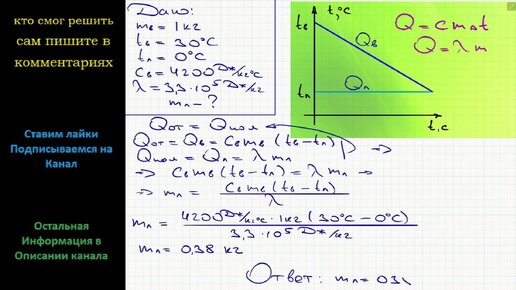 кто смог решить
сам пишите в
комментариях
Ставим лайки
Подписываемся на
Канал
Остальная
Информация в
Описании канала
Дано:
mв = 1 кг
tв = 30°C
tл = 0°C
cв = 4200 Дж/кг°C
λ = 3,3·10⁵ Дж/кг
mл - ?
t,°C
tв
Qв
Qл
tл
t,c
Q = cmΔt
Q = λm
Qот = Qпол
Qот = Qв = cвmв(tв - tл)
Qпол = Qл = λmл
=> cвmв(tв - tл) = λmл =>
=> mл = cвmв(tв - tл) / λ
mл = 4200 Дж/кг°C · 1кг(30°C - 0°C) / 3,3·10⁵ Дж/кг
mл = 0,38 кг
Ответ: mл = 0,3